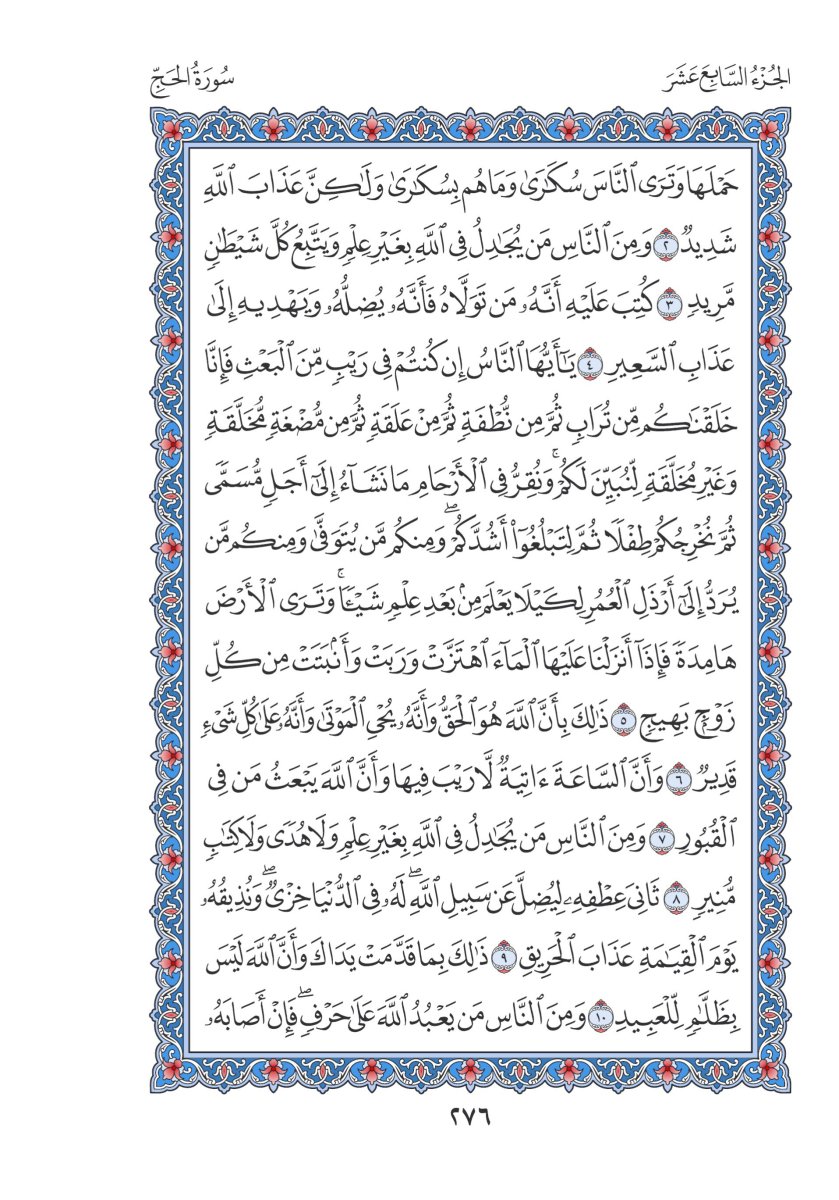 الجُزْءُ السَّابِعَ عَشَرَ
سُورَةُ الحَجِّ
حَمْلَهَا وَتَرَى ٱلنَّاسَ سُكَٰرَىٰ وَمَا هُم بِسُكَٰرَىٰ وَلَٰكِنَّ عَذَابَ ٱللَّهِ
شَدِيدٌ ٢ وَمِنَ ٱلنَّاسِ مَن يُجَٰدِلُ فِي ٱللَّهِ بِغَيْرِ عِلْمٍ وَيَتَّبِعُ كُلَّ شَيْطَٰنٍ
مَّرِيدٍ ٣ كُتِبَ عَلَيْهِ أَنَّهُۥ مَن تَوَلَّاهُ فَأَنَّهُۥ يُضِلُّهُۥ وَيَهْدِيهِ إِلَىٰ
عَذَابِ ٱلسَّعِيرِ ٤ يَٰٓأَيُّهَا ٱلنَّاسُ إِن كُنتُمْ فِي رَيْبٍ مِّنَ ٱلْبَعْثِ فَإِنَّا
خَلَقْنَٰكُم مِّن تُرَابٍ ثُمَّ مِن نُّطْفَةٍ ثُمَّ مِنْ عَلَقَةٍ ثُمَّ مِن مُّضْغَةٍ مُّخَلَّقَةٍ
وَغَيْرِ مُخَلَّقَةٍ لِّنُبَيِّنَ لَكُمْۚ وَنُقِرُّ فِي ٱلْأَرْحَامِ مَا نَشَآءُ إِلَىٰٓ أَجَلٍ مُّسَمًّى
ثُمَّ نُخْرِجُكُمْ طِفْلًا ثُمَّ لِتَبْلُغُوٓا۟ أَشُدَّكُمْۖ وَمِنكُم مَّن يُتَوَفَّىٰ وَمِنكُم مَّن
يُرَدُّ إِلَىٰٓ أَرْذَلِ ٱلْعُمُرِ لِكَيْلَا يَعْلَمَ مِنۢ بَعْدِ عِلْمٍ شَيْـًٔاۚ وَتَرَى ٱلْأَرْضَ
هَامِدَةً فَإِذَآ أَنزَلْنَا عَلَيْهَا ٱلْمَآءَ ٱهْتَزَّتْ وَرَبَتْ وَأَنۢبَتَتْ مِن كُلِّ
زَوْجٍۭ بَهِيجٍ ٥ ذَٰلِكَ بِأَنَّ ٱللَّهَ هُوَ ٱلْحَقُّ وَأَنَّهُۥ يُحْيِ ٱلْمَوْتَىٰ وَأَنَّهُۥ عَلَىٰ كُلِّ شَيْءٍ
قَدِيرٌ ٦ وَأَنَّ ٱلسَّاعَةَ ءَاتِيَةٌ لَّا رَيْبَ فِيهَا وَأَنَّ ٱللَّهَ يَبْعَثُ مَن فِي
ٱلْقُبُورِ ٧ وَمِنَ ٱلنَّاسِ مَن يُجَٰدِلُ فِي ٱللَّهِ بِغَيْرِ عِلْمٍ وَلَا هُدًى وَلَا كِتَٰبٍ
مُّنِيرٍ ٨ ثَانِيَ عِطْفِهِۦ لِيُضِلَّ عَن سَبِيلِ ٱللَّهِۖ لَهُۥ فِي ٱلدُّنْيَا خِزْيٌۖ وَنُذِيقُهُۥ
يَوْمَ ٱلْقِيَٰمَةِ عَذَابَ ٱلْحَرِيقِ ٩ ذَٰلِكَ بِمَا قَدَّمَتْ يَدَاكَ وَأَنَّ ٱللَّهَ لَيْسَ
بِظَلَّٰمٍ لِّلْعَبِيدِ ١٠ وَمِنَ ٱلنَّاسِ مَن يَعْبُدُ ٱللَّهَ عَلَىٰ حَرْفٍۖ فَإِنْ أَصَابَهُۥ
٢٧٦